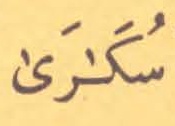 سُكَـٰرَىٰ